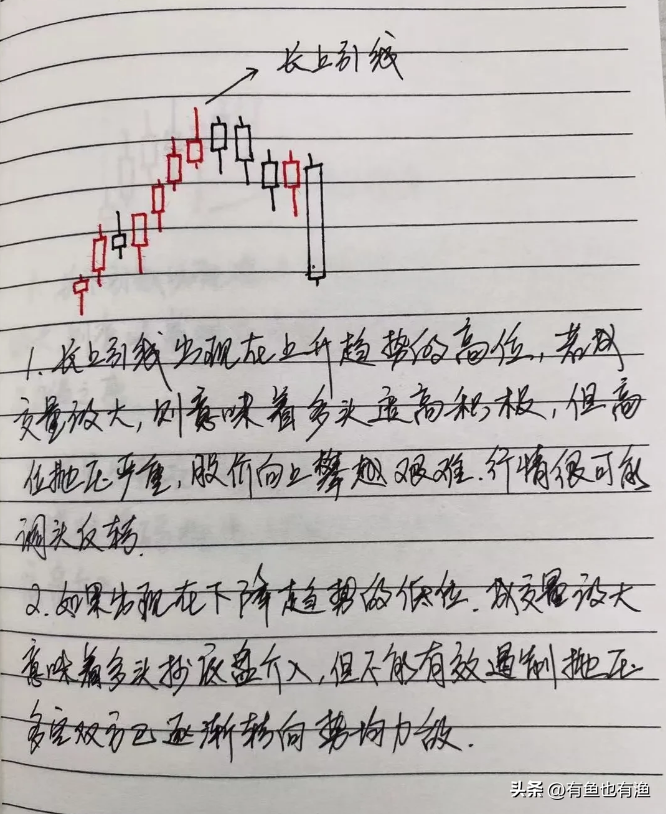 长上引线
1.长上引线出现在上升趋势的高位,若成
交量放大,则意味着多头追高积极,但高
位抛压严重,股价向上攀越艰难.行情很可能
调头反转.
2.如果出现在下降趋势的低位.成交量放大
意味着多头抄底盘介入,但不能有效遏制抛压
多空双方已逐渐转向势均力敌.
头条 @有鱼也有渔